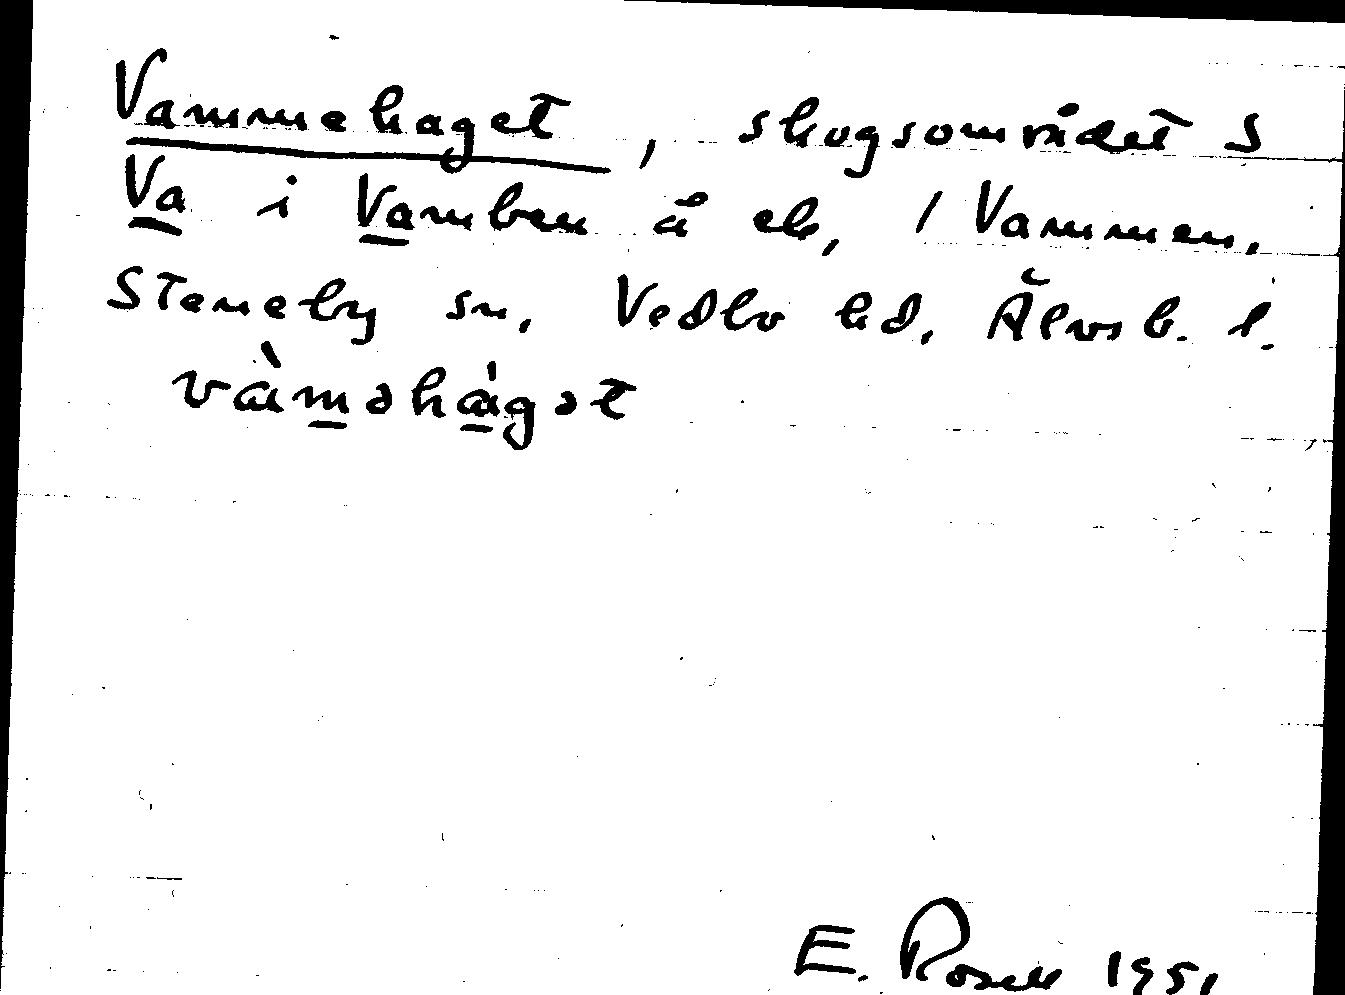 Vammehaget, skogsområdet S
Va i Vamben å ek, / Vammen,
Steneby sn, Vedbo hd, Älvsb. l.
vàməhágət
E. Rosell 1951